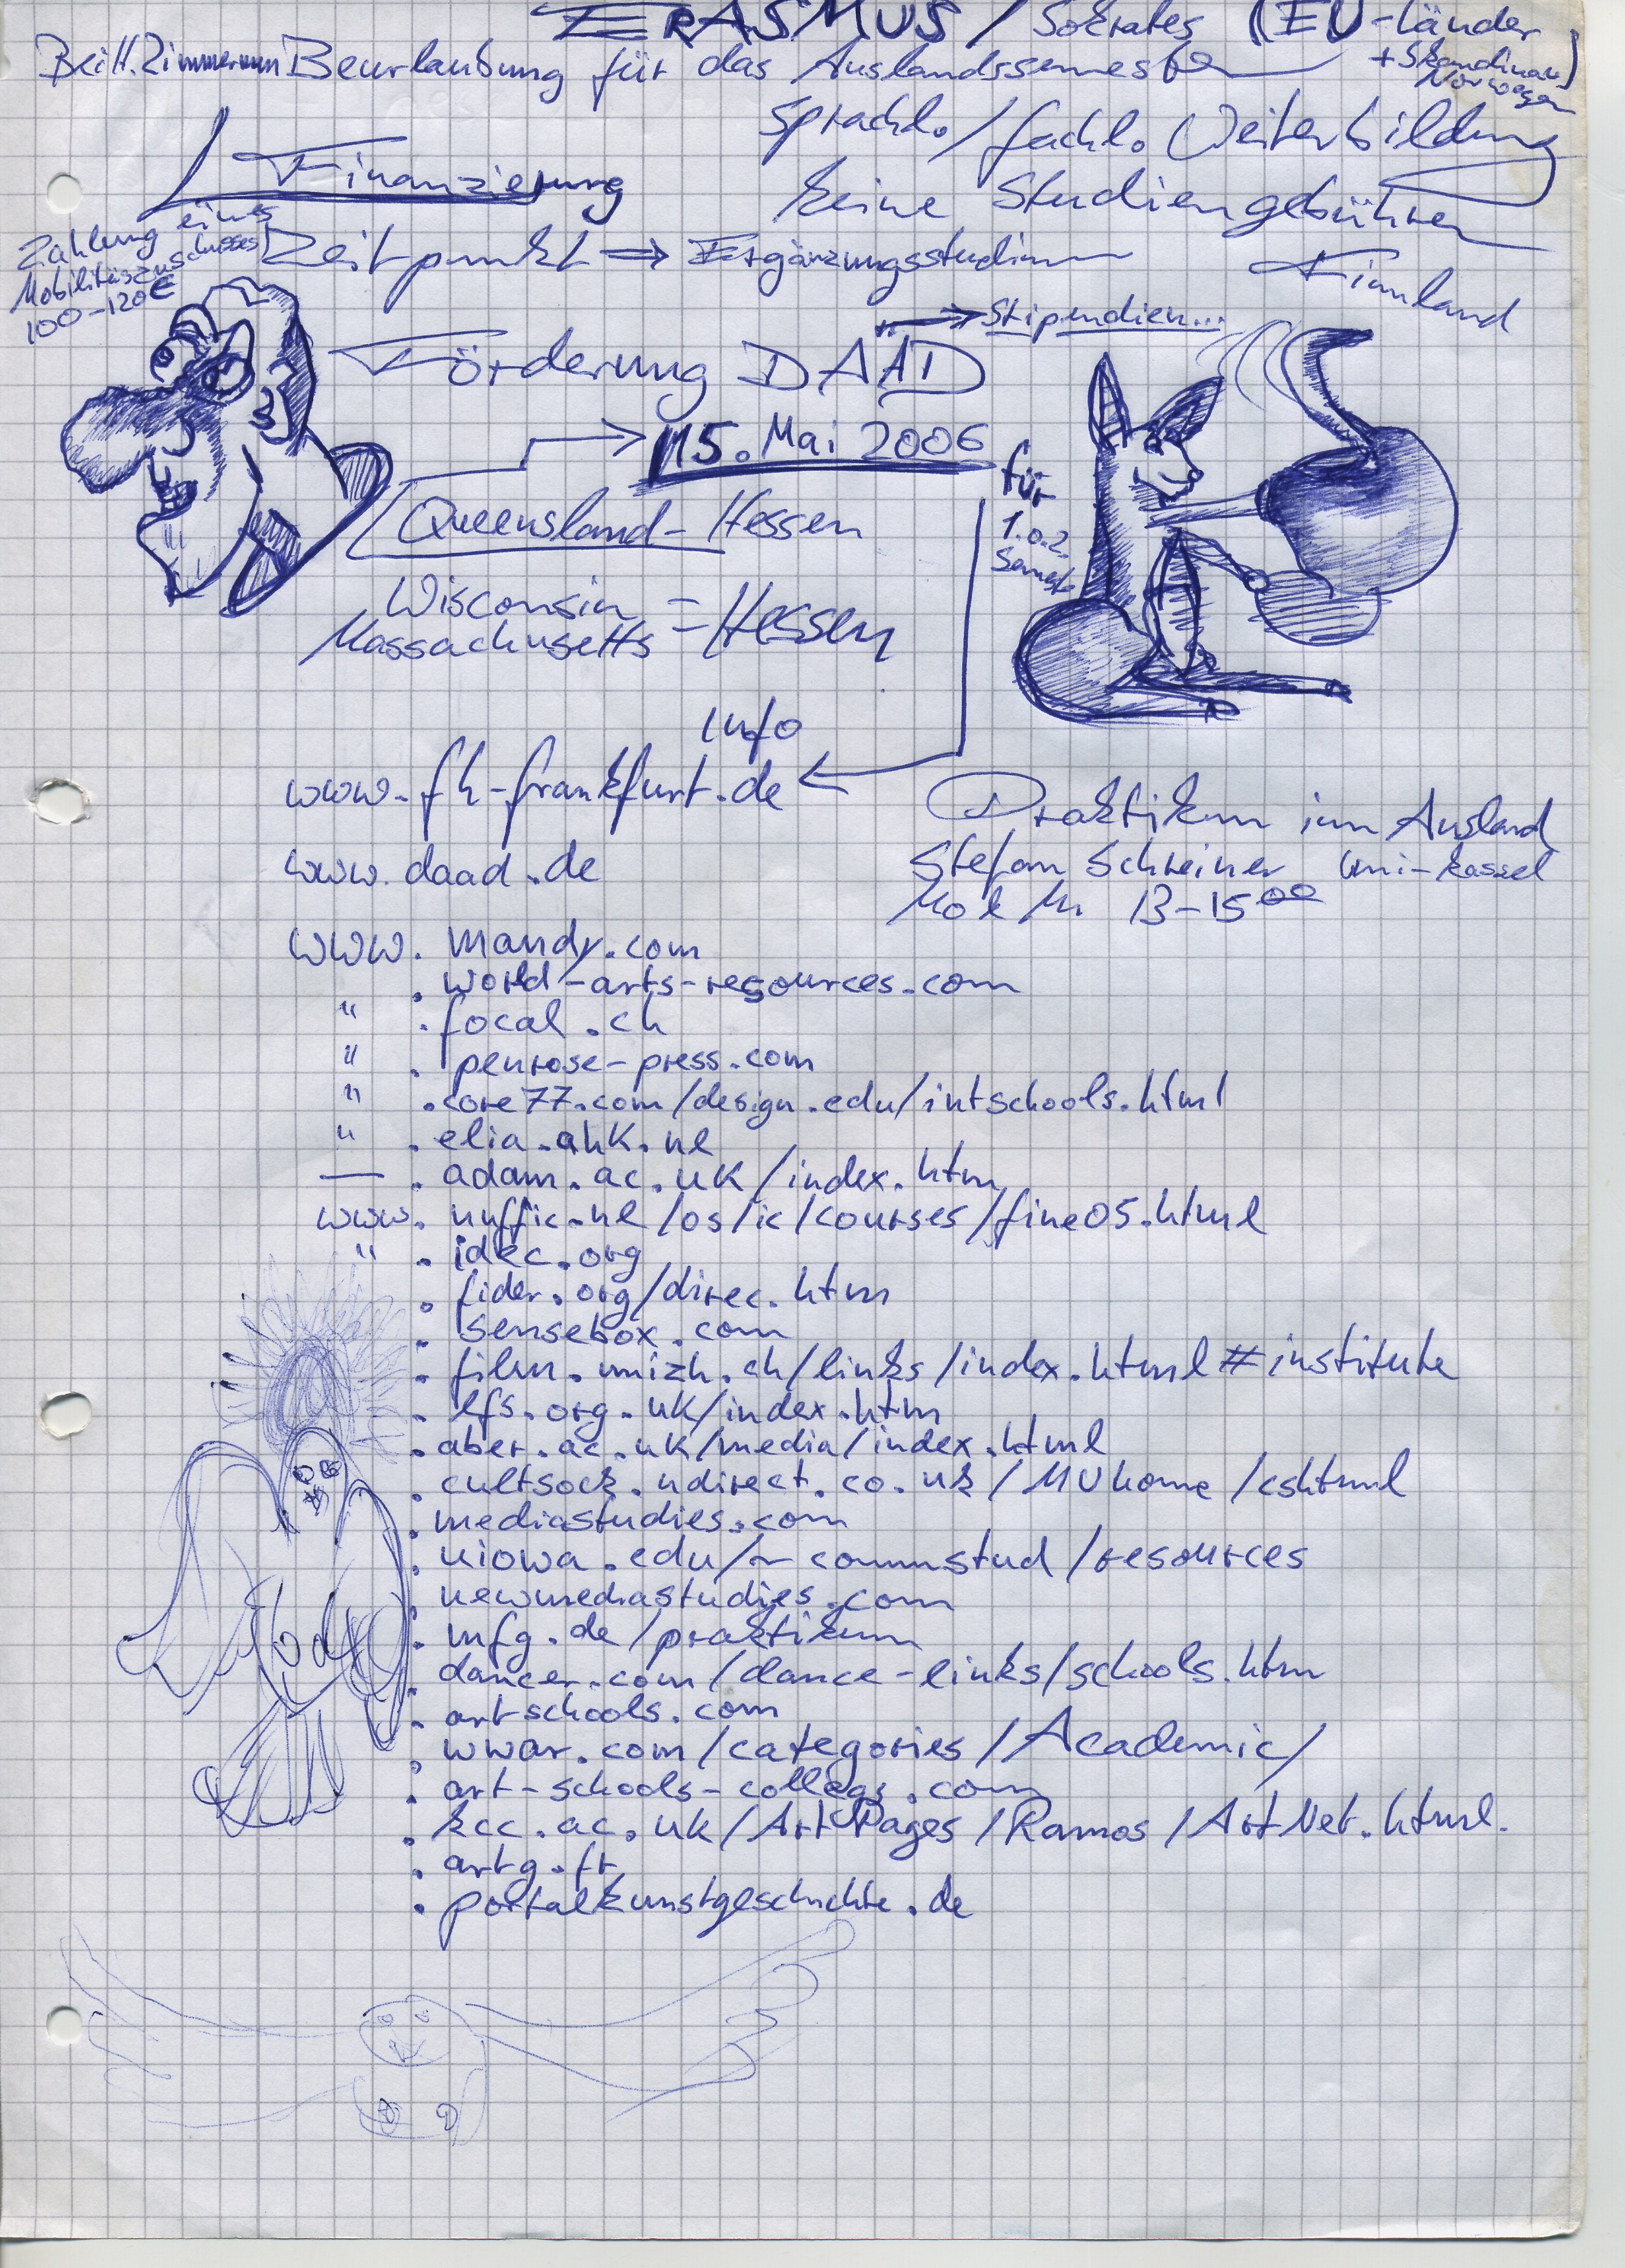 ERASMUS / Sokrates (EU-länder
+ Skandinav)
Norwegen
Bei H. Zimmermann Beurlaubung für das Auslandssemester
Sprachl. / fachl. Weiterbildung
Finanzierung
keine Studiengebühren
Zahlung eines
Mobilitäszuschusses
100-120€
Zeitpunkt ⇒ Ergänzungsstudium
Finnland
→ Stipendien...
Förderung DAAD
→ 15. Mai 2006
für
1.o.2.
Semester
Queensland - Hessen
Wisconsin
Massachusetts - Hessen
Info
www.fh-frankfurt.de
Praktikum im Ausland
www.daad.de
Stefan Schreiner Uni-Kassel
13-15 00
www.mandy.com
.world-arts-resources.com
" .focal.ch
" .penrose-press.com
" .core77.com/design.edu/intschools.html
" .elia.ahk.nl
— .adam.ac.uk/index.htm
www.nuffic.nl/os/ic/courses/fine05.html
" .idec.org
.fider.org/direc.htm
.sensebox.com
.film.unizh.ch/links/index.html#institute
.lfs.org.uk/index.htm
.aber.ac.uk/media/index.html
.cultsock.ndirect.co.uk/MUhome/cshtml
.mediastudies.com
.uiowa.edu/~commstud/resources
.newmediastudies.com
.mfg.de/praktikum
.dancer.com/dance-links/schools.htm
.artschools.com
.wwar.com/categories/Academic/
.art-schools-colleges.com
.kcc.ac.uk/ArtPages/Ramos/ArtNet.html.
.artg.fr
.portalkunstgeschichte.de